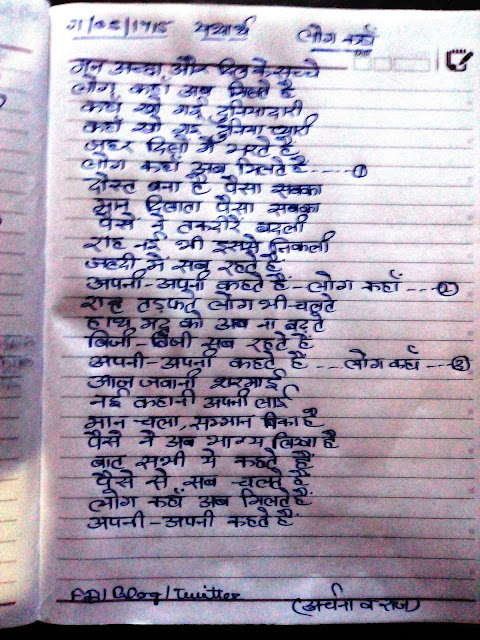 यथार्थ लोग कहाँ
मन अच्छा और दिल के सच्चे
लोग कहाँ अब मिलते हैं
कहाँ खो गई दुनियादारी
कहाँ खो गई दुनिया प्यारी
जहर दिलों में भरते हैं
लोग कहाँ अब मिलते हैं ----- ①
दोस्त बना है पैसा सबका
मान दिलाता पैसा सबका
पैसे ने तकदीरें बदली
राह नई भी इससे निकली
जल्दी में सब रहते हैं
अपनी-अपनी कहते हैं - लोग कहाँ --- ②
राह तड़फते लोग भी चलते
हाथ मदद को अब ना बढ़ते
बिजी-बिजी सब रहते हैं
अपनी-अपनी कहते हैं --- लोग कहाँ --- ③
आज जवानी शरमाई
नई कहानी अपनी लाई
मान चला, सम्मान बिका है
पैसे ने अब भाग्य लिखा है
बात सभी ये कहते हैं
पैसे से सब चलते हैं
लोग कहाँ अब मिलते हैं
अपनी-अपनी कहते हैं
FB/Blog/Twitter
(अर्चना व राज)